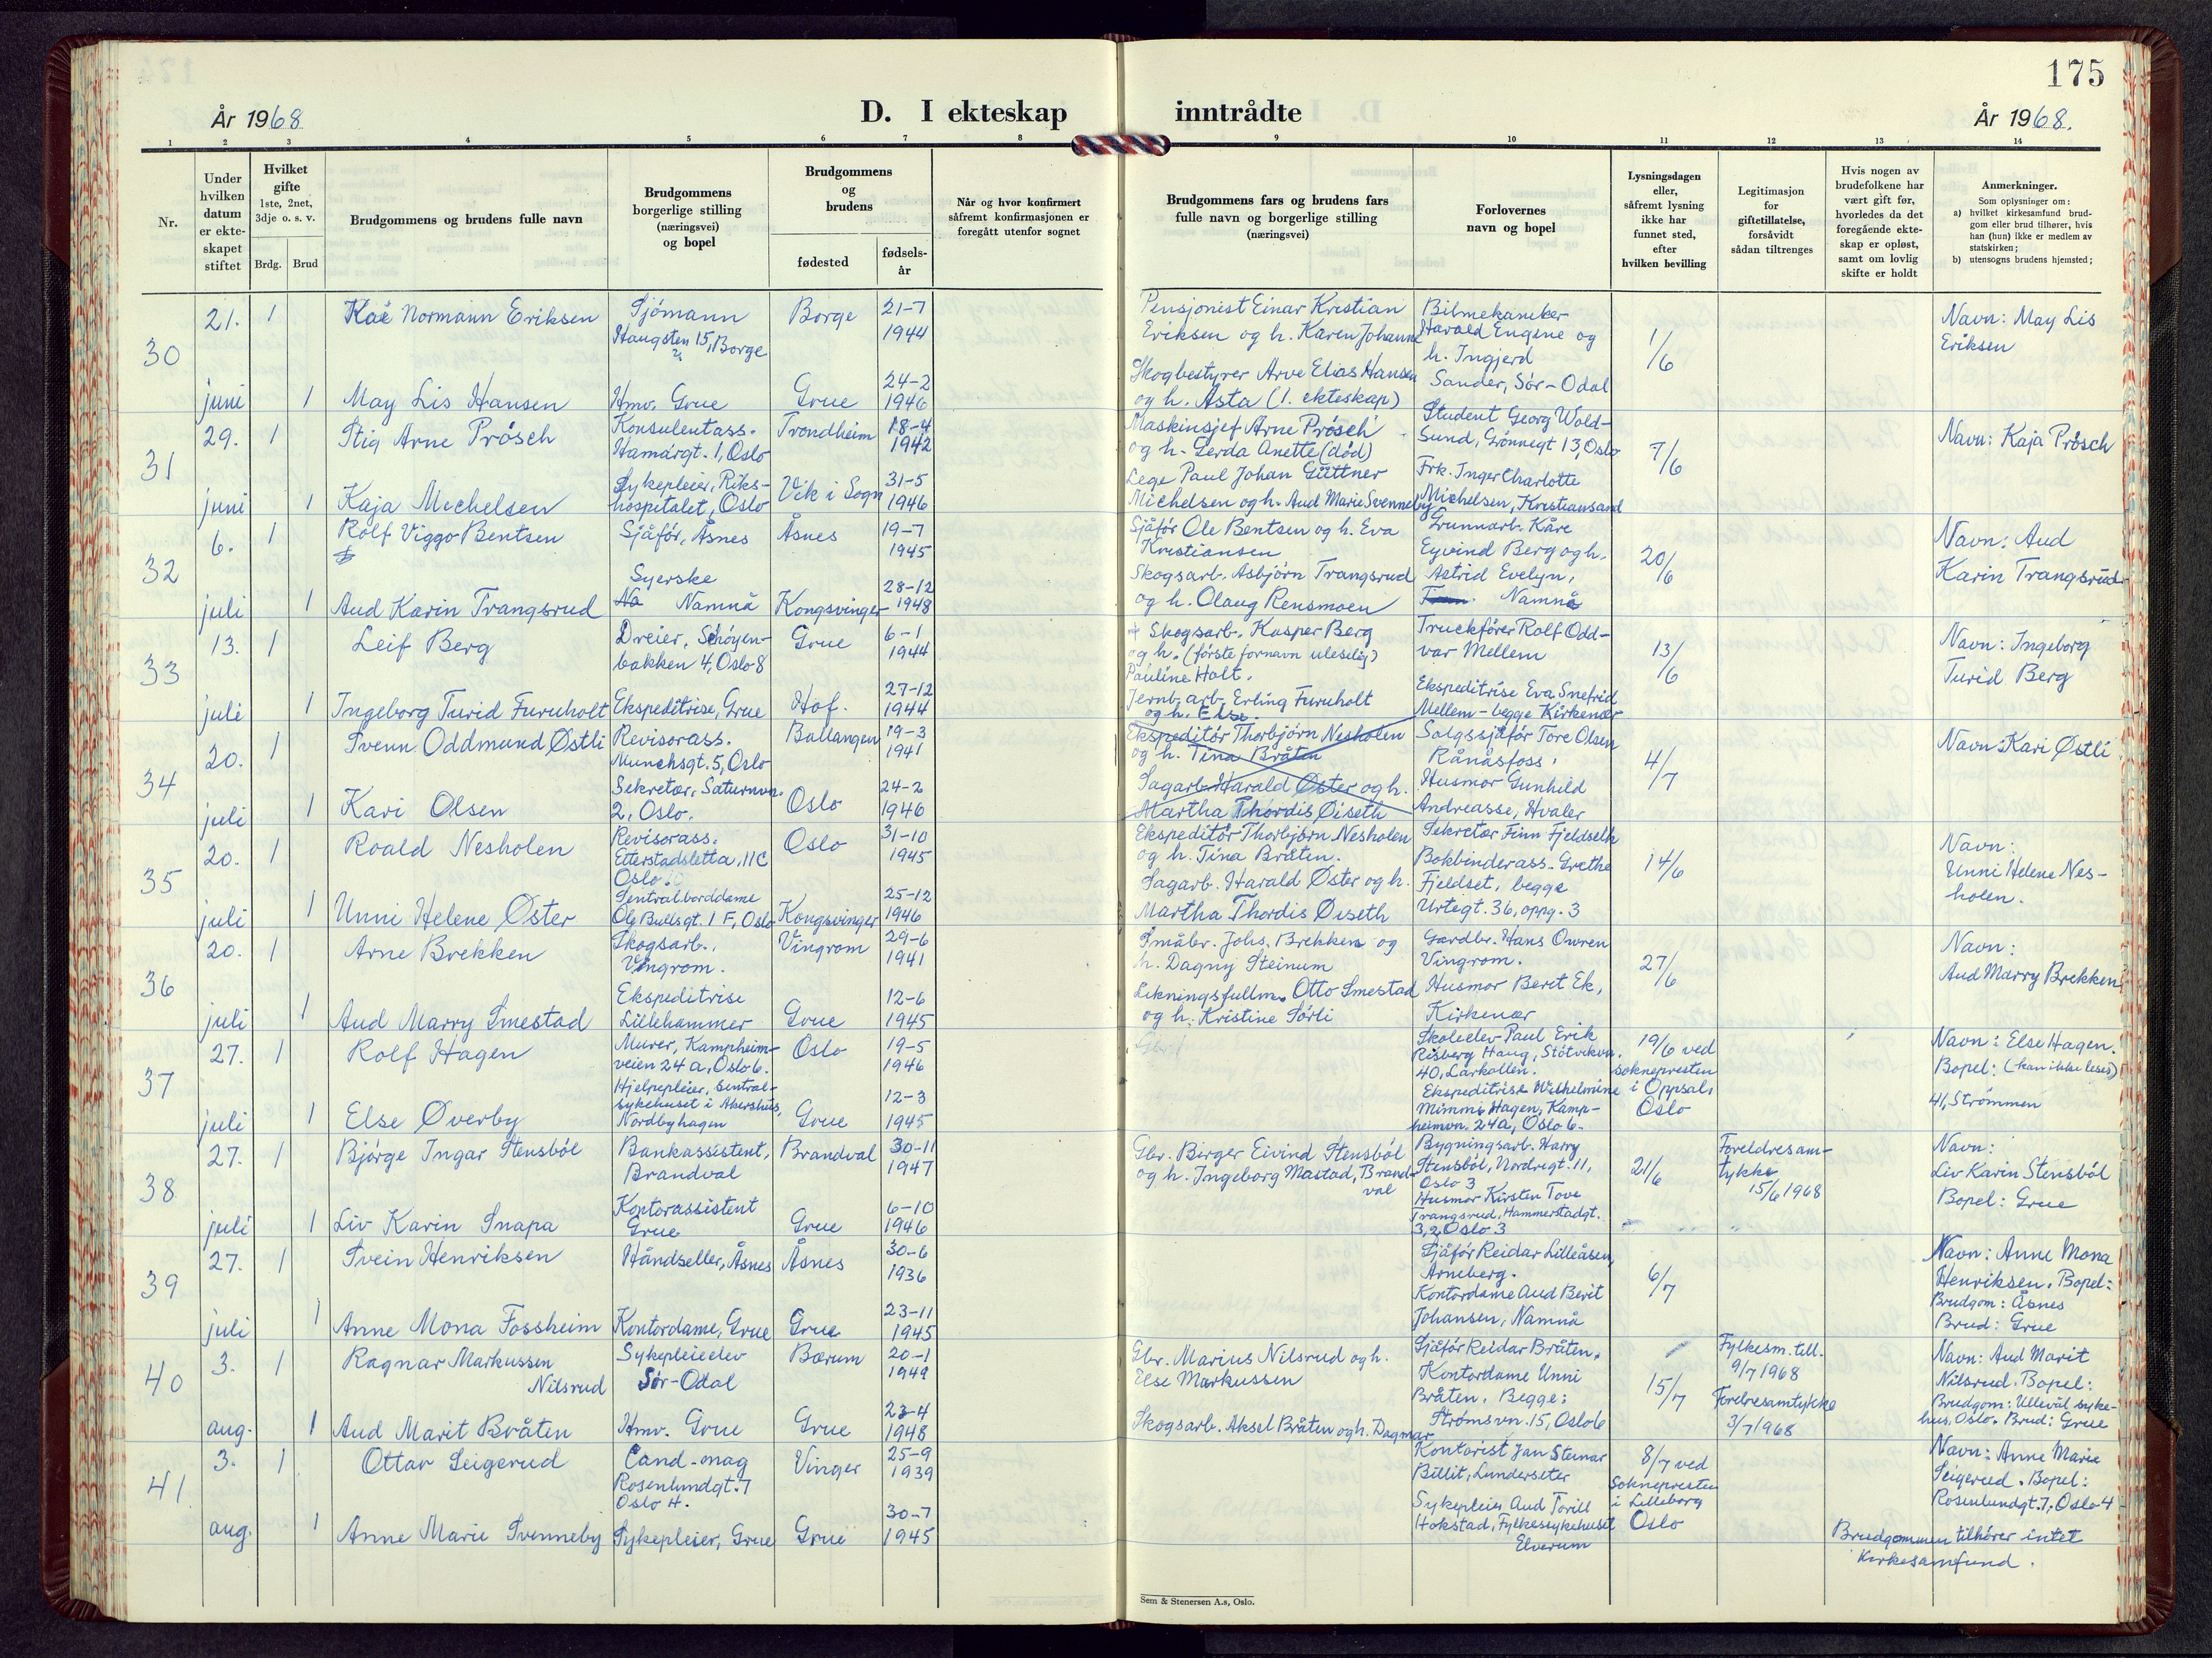 175
År 1968
D. I ekteskap inntrådte
År 1968.
1 2 3 4 5 6 7 8 9 10 11 12 13 14
Nr.
Under hvilken datum er ekte-skapet stiftet
Hvilket gifte 1ste, 2net, 3dje o. s. v.
Brdg. Brud
Brudgommens og brudens fulle navn
Brudgommens borgerlige stilling (næringsvei) og bopel
Brudgommens og brudens
fødested
fødsels-år
Når og hvor konfirmert såfremt konfirmasjonen er foregått utenfor sognet
Brudgommens fars og brudens fars fulle navn og borgerlige stilling (næringsvei)
Forlovernes navn og bopel
Lysningsdagen eller, såfremt lysning ikke har funnet sted, efter hvilken bevilling
Legitimasjon for giftetillatelse, forsåvidt sådan tiltrenges
Hvis nogen av brudefolkene har vært gift før, hvorledes da det foregående ekte-skap er opløst, samt om lovlig skifte er holdt
Anmerkninger.
Som oplysninger om:
a) hvilket kirkesamfund brud-gom eller brud tilhører, hvis han (hun) ikke er medlem av statskirken;
b) utensogns brudens hjemsted;
30
21. juni
1 Normann Eriksen
Sjømann
Haugsten 15, Borge
Borge
21-7 1944
Pensjonist Einar Kristian
Eriksen og h. Karen Johanne
Bilmekaniker
Harald Eugene og
h. Ingjerd
Sander, Sör-Odal
1/6
Navn: May Lis
Eriksen
1 May Lis Hansen
Hmv. Grue
Grue
24-2 1946
Skogbestyrer Arve Elias Hansen
og h. Asta (1. ekteskap)
31
29. juni
1 Stig Arne Prösch
Konsulentass.
Hamargt. 1, Oslo
Trondheim
18-4 1942
Maskinsjef Arne Prösch
og h. Gerda Anette (död)
Student Georg Wold-
Sund, Grönnegt 13, Oslo
7/6
Navn: Kaja Prösch
1 Kaja Michelsen
Sykepleier, Riks-
hospitalet, Oslo
Vik i Sogn
31-5 1946
Lege Paul Johan Güttner
Michelsen og h. Aud Marie Svenneby
Frk. Inger Charlotte
Michelsen, Kristiansand
32
6. juli
1 Rolf Viggo Bentsen
Sjåför, Åsnes
Åsnes
19-7 1945
Sjåför Ole Bentsen og h. Eva
Kristiansen
Grunnarb. Kåre
Eyvind Berg og h.
Astrid Evelyn,
Namnå
20/6
Navn: Aud
Karin Trangsrud
1 Aud Karin Trangsrud
Syerske
Namnå
Kongsvinger
28-12 1948
Skogsarb. Asbjörn Trangsrud
og h. Olaug Rensmoen
33
13. juli
1 Leif Berg
Dreier, Schöyen-
bakken 4, Oslo 8
Grue
6-1 1944
+ Skogsarb. Kasper Berg
og h. (förste fornavn uleselig)
Pauline Holt.
Truckförer Rolf Odd-
var Mellem
13/6
Navn: Ingeborg
Turid Berg
1 Ingeborg Turid Furuholt
Ekspeditrise, Grue
Hof.
27-12 1944
Jernb.arb. Erling Furuholt
og h. Else.
Ekspeditrise Eva Snefrid
Mellem - begge Kirkenær
34
20. juli
1 Svenn Oddmund Østli
Revisorass.
Munchsgt. 5, Oslo
Ballangen
19-3 1941
Ekspeditör Thorbjörn Nesholen
og h. Tina Bråten
Salgssjåför Tore Olsen
Rånåsfoss.
4/7
Navn: Kari Østli
1 Kari Olsen
Sekretær, Saturnvn.
2, Oslo.
Oslo
24-2 1946
Sagarb. Harald Øster og h.
Martha Thordis Øiseth
Husmor Gunhild
Andreasse, Hvaler
35
20. juli
1 Roald Nesholen
Revisorass.
Etterstadsletta, 11C
Oslo
Oslo
31-10 1945
Ekspeditör Thorbjörn Nesholen
og h. Tina Bråten.
Sekretær Finn Fjeldseth
Bokbinderass. Grethe
Fjeldset, begge
Urtegt. 36, oppg. 3
14/6
Navn:
Unni Helene Nes-
holen.
1 Unni Helene Øster
Sentralborddame
Ole Bullsgt. 1 F, Oslo
Kongsvinger
25-12 1946
Sagarb. Harald Øster og h.
Martha Thordis Øiseth
36
20. juli
1 Arne Brekken
Skogsarb.,
Vingrom.
Vingrom
29-6 1941
Småbr. Johs. Brekken og
h. Dagny Steinum
Gardbr. Hans Owren
Vingrom.
27/6
Navn:
Aud Marry Brekken
1 Aud Marry Smestad
Ekspeditrise
Lillehammer
Grue
12-6 1945
Likningsfullm. Otto Smestad
og h. Kristine Sörli
Husmor Berit Ek,
Kirkenær
37
27. juli
1 Rolf Hagen
Murer, Kampheim-
veien 24 a, Oslo 6.
Oslo
19-5 1946
Skoleelev Paul Erik
Risberg Haug, Stötvikvn.
40, Larkollen.
19/6 ved
sokneprosten
i Oppsal,
Oslo
Navn: Else Hagen.
Bopel: (kan ikke leses)
41, Strömmen
1 Else Øverby
Hjelpepleier, Sentral-
sykehuset i Akershus,
Nordbyhagen
Grue
12-3 1945
Ekspeditrise Wilhelmine
Mimmi Hagen, Kamp-
heimvn. 24a, Oslo 6.
38
27. juli
1 Björge Ingar Stensböl
Bankassistent,
Brandval
Brandval
30-11 1947
Gbr. Birger Eivind Stensböl
og h. Ingeborg Mastad, Brand-
val
Bygningsarb. Harry
Stensböl, Nordregt. 11,
Oslo 3
21/6
Foreldresam-
tykke
15/6 1968
Navn:
Liv Karin Stensböl
Bopel: Grue
1 Liv Karin Snapa
Kontorassistent
Grue
Grue
6-10 1946
Husmor Kirsten Tove
Trangsrud, Hammerstadgt.
Oslo 3
39
27. juli
1 Svein Henriksen
Håndseller, Åsnes
Åsnes
30-6 1936
Sjåför Reidar Lilleåsen,
Arneberg.
6/7
Navn: Anne Mona
Henriksen. Bopel:
Brudgom: Åsnes
Brud: Grue
1 Anne Mona Fossheim
Kontordame, Grue
Grue
23-11 1945
Kontordame Aud Berit
Johansen, Namnå
40
3. aug.
1 Ragnar Markussen
Nilsrud
Sykepleieelev
Sör-Odal
Bærum
20-1 1949
Gbr. Marius Nilsrud og h.
Else Markussen
Sjåför Reidar Bråten.
Kontordame Unni
Bråten. Begge:
Strömsvn. 15, Oslo 6
15/7
Fylkesm. till.
9/7 1968
Foreldresamtykke
3/7 1968
Navn: Aud Marit
Nilsrud. Bopel:
Brudgom: Ullevål syke-
hus, Oslo. Brud: Grue
1 Aud Marit Bråten
Hmv. Grue
Grue
23-4 1948
Skogsarb. Aksel Bråten og h. Dagmar
41
3. aug.
1 Ottar Seigerud
Cand-mag
Rosenlundgt. 7
Oslo 4.
Vinger
25-9 1939
Kontorist Jan Steinar
Billit, Lunderseter
8/7 ved
Sokneprosten
i Lilleborg
Oslo
Navn: Anne Marie
Seigerud. Bopel:
Rosenlundgt. 7, Oslo 4
1 Anne Marie Svenneby
Sykepleier, Grue
Grue
30-7 1945
Sykepleier Aud Torill
Hokstad, Fylkessykehuset
Elverum
Brudgommen tilhörer intet
kirkesamfund.
Sem & Stenersen A.s, Oslo.